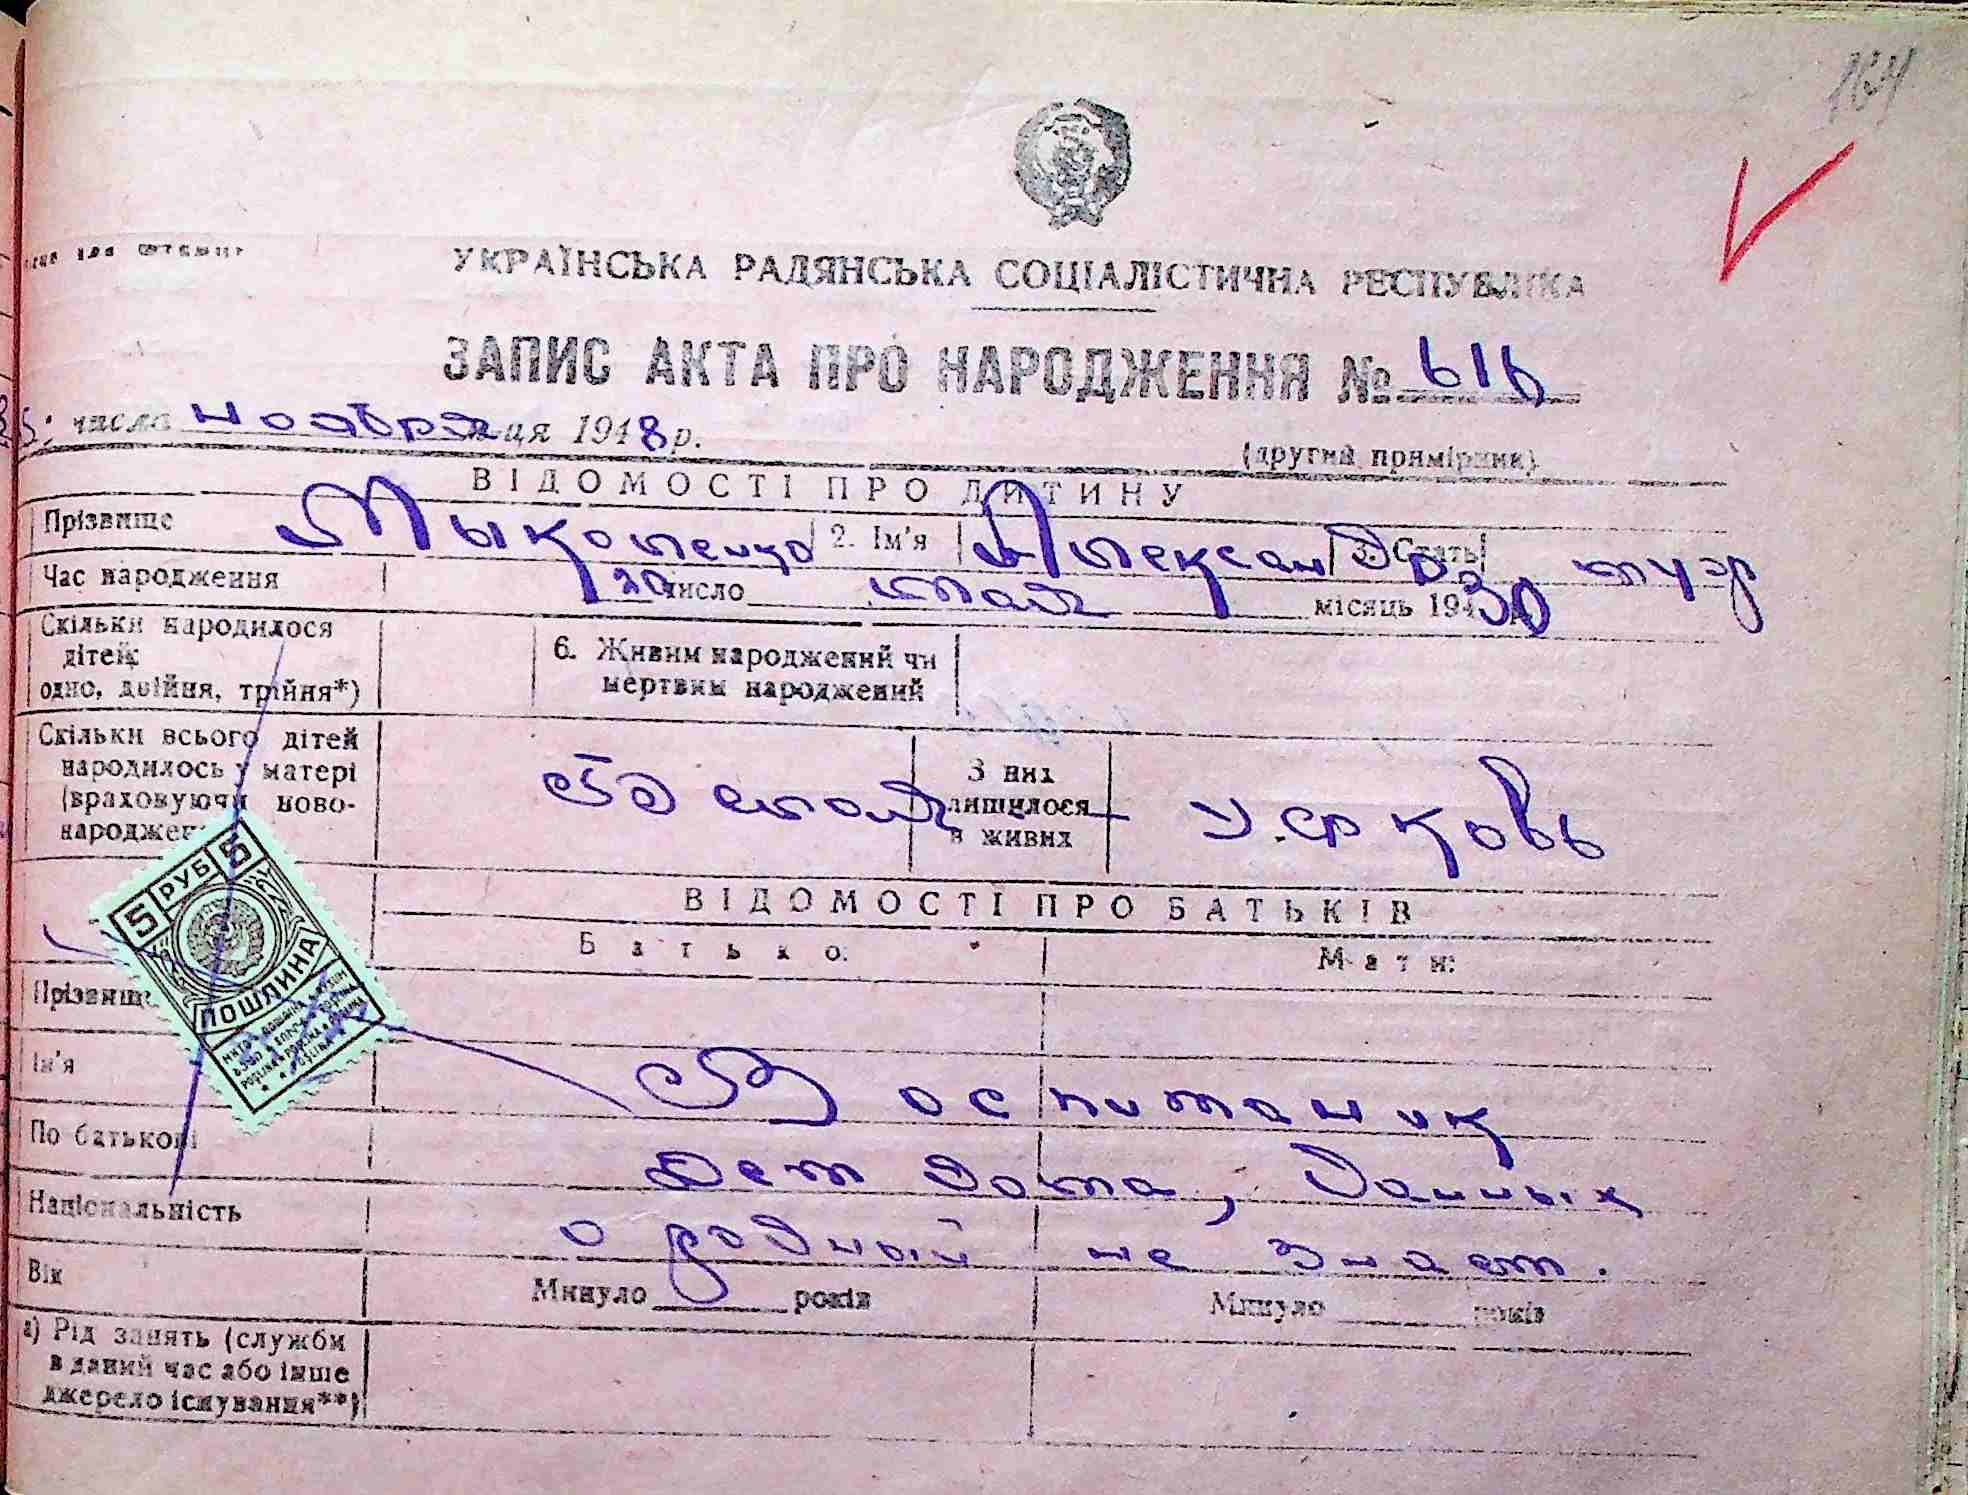 164
УКРАЇНСЬКА РАДЯНСЬКА СОЦІАЛІСТИЧНА РЕСПУБЛІКА
ЗАПИС АКТА ПРО НАРОДЖЕННЯ № 616
числа ноября м-ця 1948 р.
(другий примірник)
ВІДОМОСТІ ПРО ДИТИНУ
Прізвище 2. Ім'я Александр 3. Стать муж
Час народження 20 число мая місяць 1930
Скільки народилося дітей: одно, двійня, трійня*)
6. Живим народжений чи мертвим народжений
Скільки всього дітей народилось у матері (враховуючи ново-народжен
З них лишилося в живих
5 РУБ 5
ПОШЛИНА
ВІДОМОСТІ ПРО БАТЬКІВ
Батько: Мати:
Прізвище
Ім'я Воспитаник
По батькові Дет дома, данных
Національність о родный не знает.
Вік Минуло років Минуло років
а) Рід занять (служби
в даний час або інше
джерело існування**)